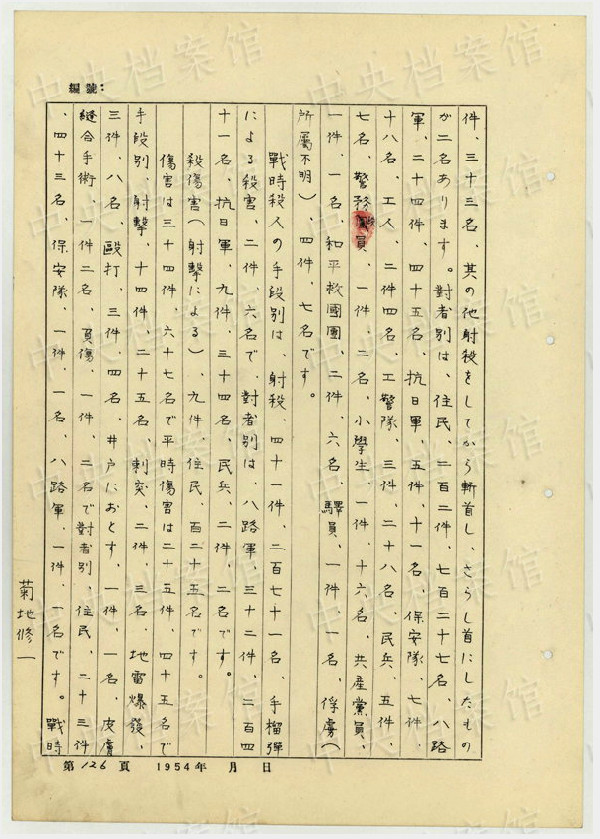 編號：
件、三十三名、其の他射殺をしてから斬首し、さらし首にしたもの
が二名あります。對者別は、住民、二百二件、七百二十七名、八路
軍、二十四件、四十五名、抗日軍、五件、十一名、保安隊、七件、
十八名、工人、二件四名、工警隊、三件、二十八名、民兵、五件、
七名、警務段員、一件、二名、小學生、一件、十六名、共産黨員、
一件、一名、和平救國團、二件、六名、驛員、一件、一名、俘虜（
所屬不明）、四件、七名です。
戰時殺人の手段別は、射殺、四十一件、二百七十一名、手榴彈
による殺害、二件、六名で、對者別は、八路軍、三十二件、二百四
十一名、抗日軍、九件、三十四名、民兵、二件、二名です。
殺傷害（射擊による）、九件、住民、百二十五名です。
傷害は三十四件、六十七名で平時傷害は二十五件、四十五名で
手段別、射擊、十四件、二十五名、刺突、二件、三名、地雷爆發、
三件、八名、毆打、三件、四名、井戸におとす、一件、一名、皮膚
縫合手術、一件二名、負傷、一件、二名で對者別、住民、二十三件
、四十三名、保安隊、一件、一名、八路軍、一件、一名です。戰時
菊地修一
第126頁 1954年 月 日
中央档案馆